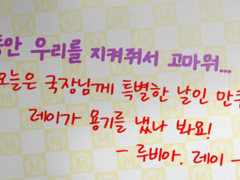 우리를 지켜줘서 고마워...
오늘은 국장님께 특별한 날인 만큼
레이가 용기를 냈나 봐요!
- 루비아. 레이 -